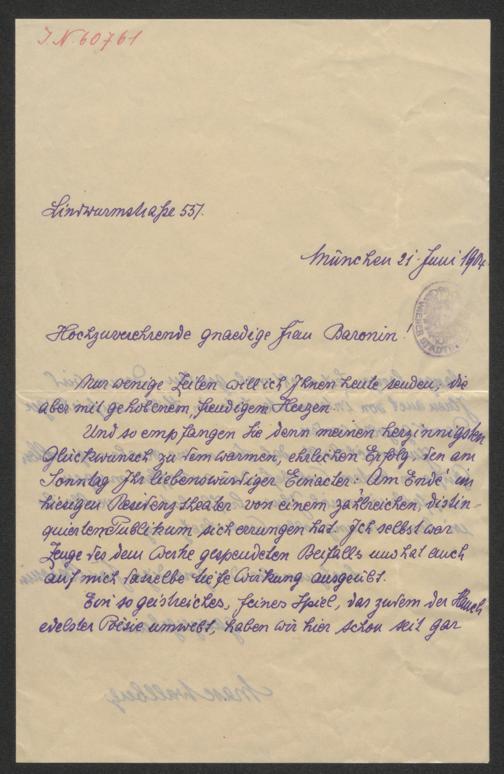 I.N. 60761
Lindwurmstraße 55/I.
München 21. Juni 1904
Hochzuverehrende gnaedige Frau Baronin!
Nur wenige Zeilen will ich Ihnen heute senden, die
aber mit gehobenem, freudigem Herzen.
Und so empfangen Sie denn meinen herzinnigsten
Glückwunsch zu dem warmen, ehrlichen Erfolg den am
Sonntag Ihr liebenswürdiger Einacter: Am Ende im
hiesigen Residenztheater von einem zahlreichen, distin-
guierten Publikum sich errungen hat. Ich selbst war
Zeuge des dem Werke gespendeten Beifalls und hat auch
auf mich dasselbe tiefe Wirkung ausgeübt.
Ein so geistreiches, feines Spiel, das zudem der Hauch
edelster Poesie umwebt, haben wir hier schon seit gar